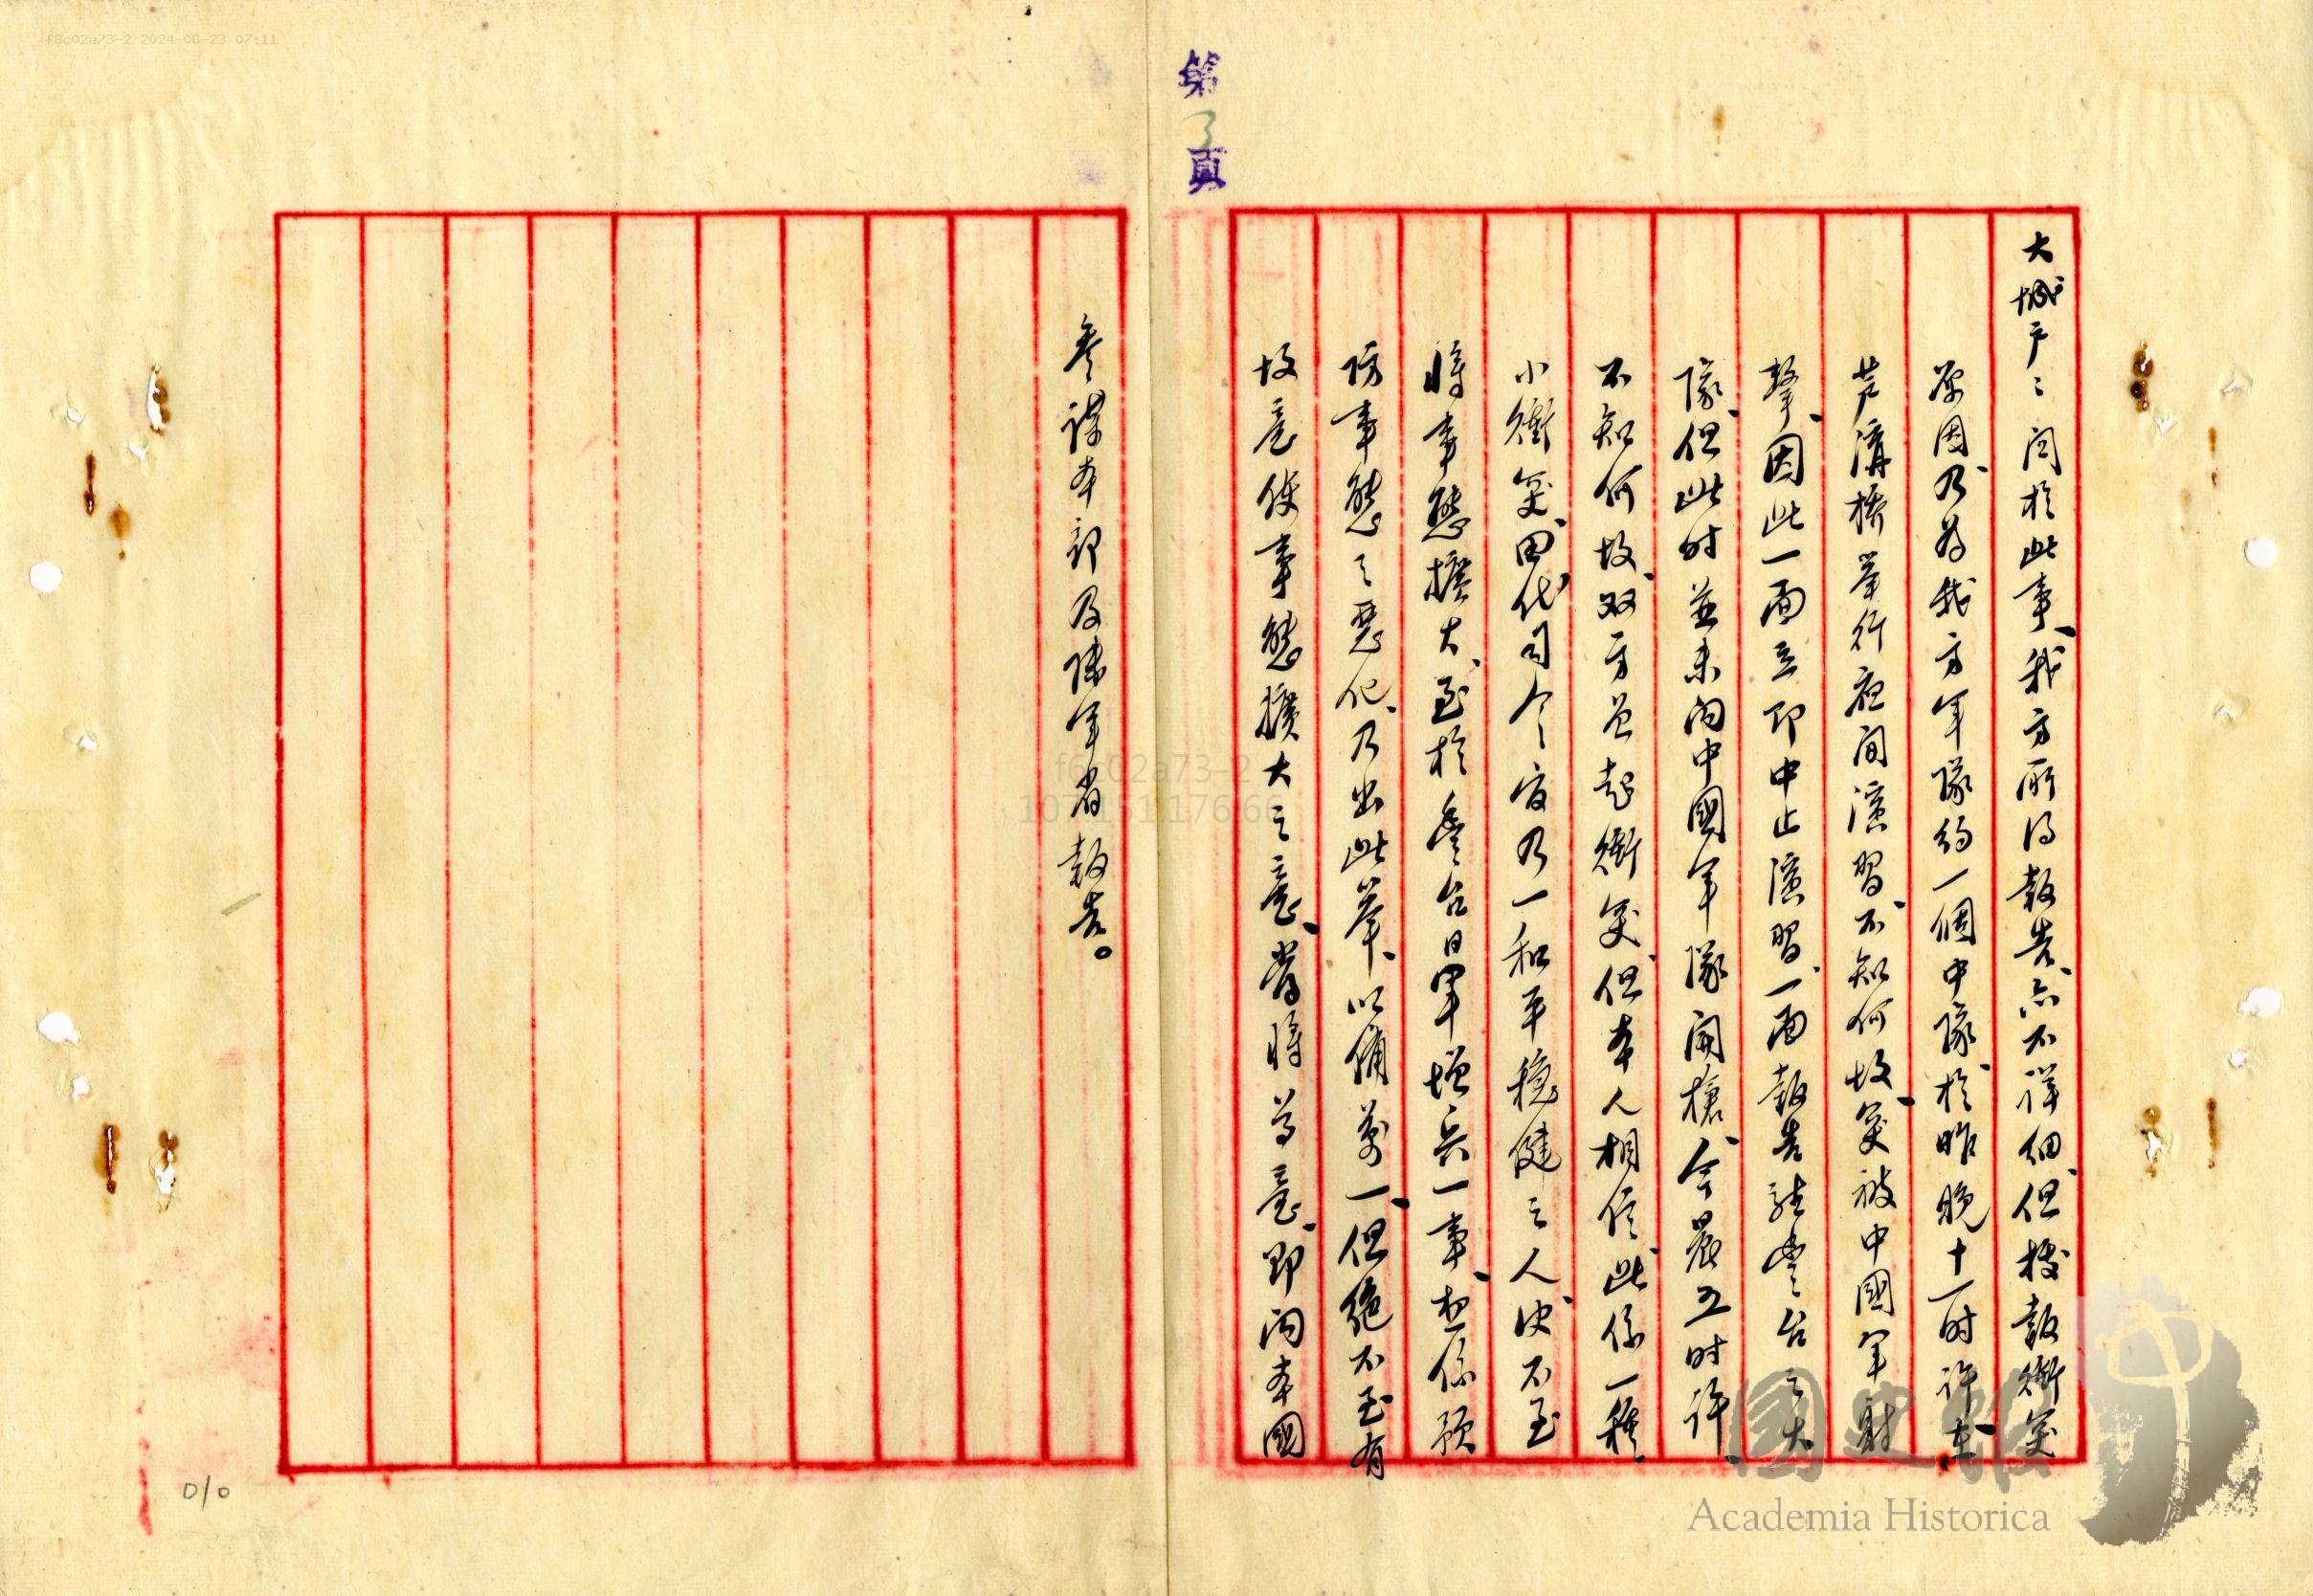 f6c02a73-2 2024-06-23 07:11
第3頁
大城戶：關於此事、我方所得報告、亦不詳細、但據報衝突
原因、乃为我方軍隊約一個中隊、於昨晚十一时許在
芦溝橋舉行夜間演習、不知何故、突被中國軍射
擊、因此一面立即中止演習、一面報告駐豐台之大
隊、但此时並未向中國軍隊開槍、今晨五时許、
不知何故、双方又起衝突、但本人相信、此係一種
小衝突、田代司令官乃一和平穩健之人、决不至
將事態擴大、至於豐台日軍增兵一事、想係預
防事態之惡化、乃出此舉、以備萬一、但絕不至有
故意使事態擴大之意、當將尊意、即向本國
參謀本部及陸軍省報告。
f6c02a73-2
107.151.176.66
010
國史館
Academia Historica